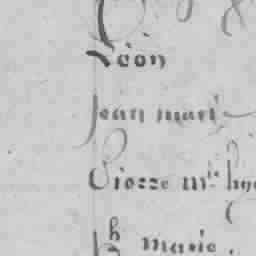 Léon
jean mari
Pierre m.
marie